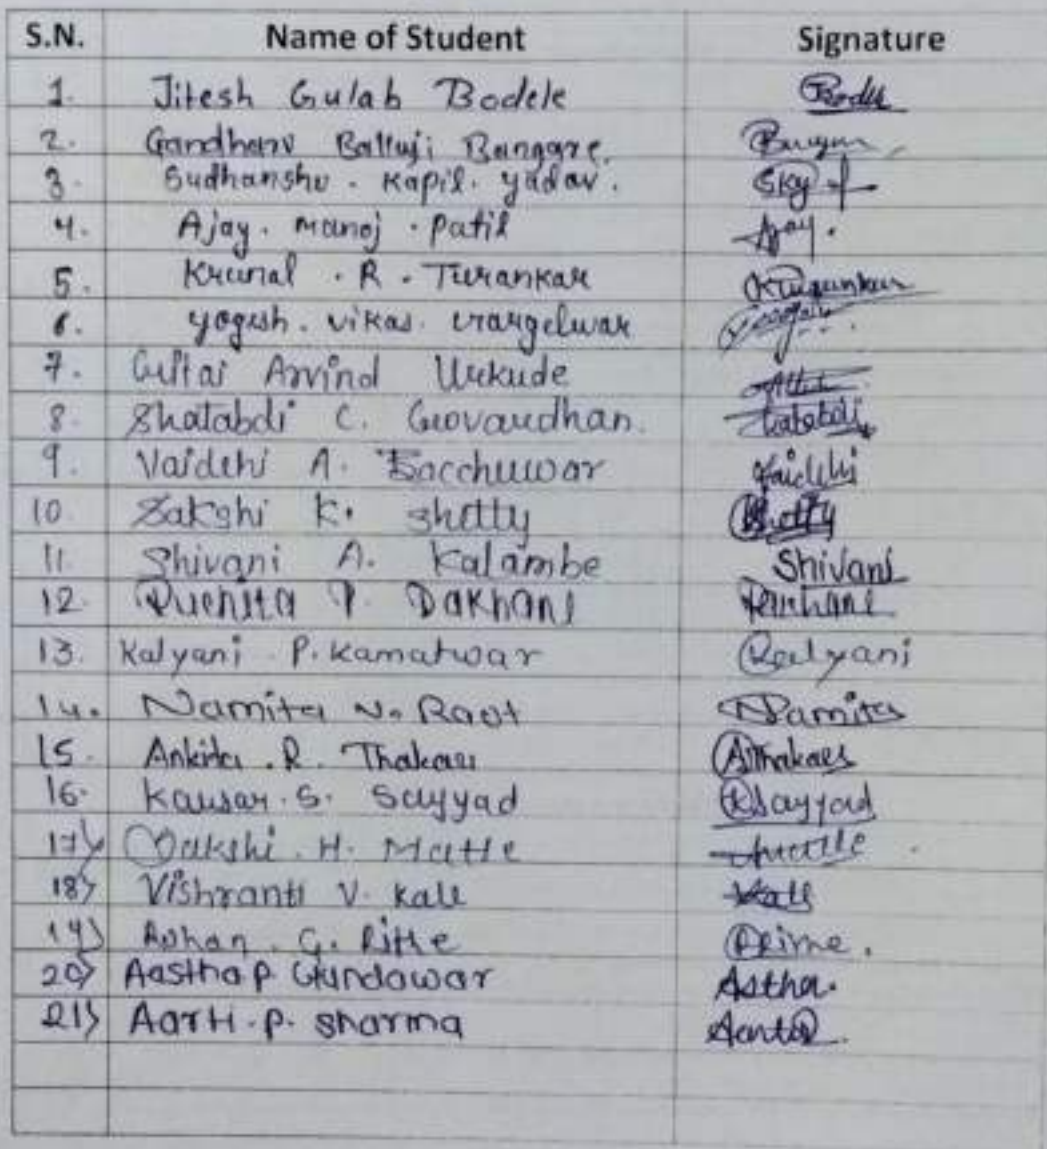 S.N. Name of Student Signature
1. Jitesh Gulab Bodele Bodele
2. Gandharv Balluji Bangare.
3. Sudhanshu . Kapil . Yadav . SKY
4. Ajay . Manoj . Patil Ajay .
5. Krunal . R . Turankar
6. Yogesh . Vikas .
7. Arvind Urkude
8. Shatabdi C. Govardhan. Shatabdi
9. Vaidehi A. Bacchuwar Vaidehi
10 Sakshi K. Shetty Shetty
11. Shivani A. Kalambe Shivani
12. Ruchita P. Dakhane
13. Kalyani P. Kamatwar Kalyani
14. Namita N. Raot Namita
15. Ankita . R. Thakare AThakare
16. Kausar . S. Sayyad KSayyad
17) Sakshi . H. Matte
18) Vishranti V. Kale Kale
19) G.
20) Aastha P Gundawar Astha.
21) Aarti . P. Sharma